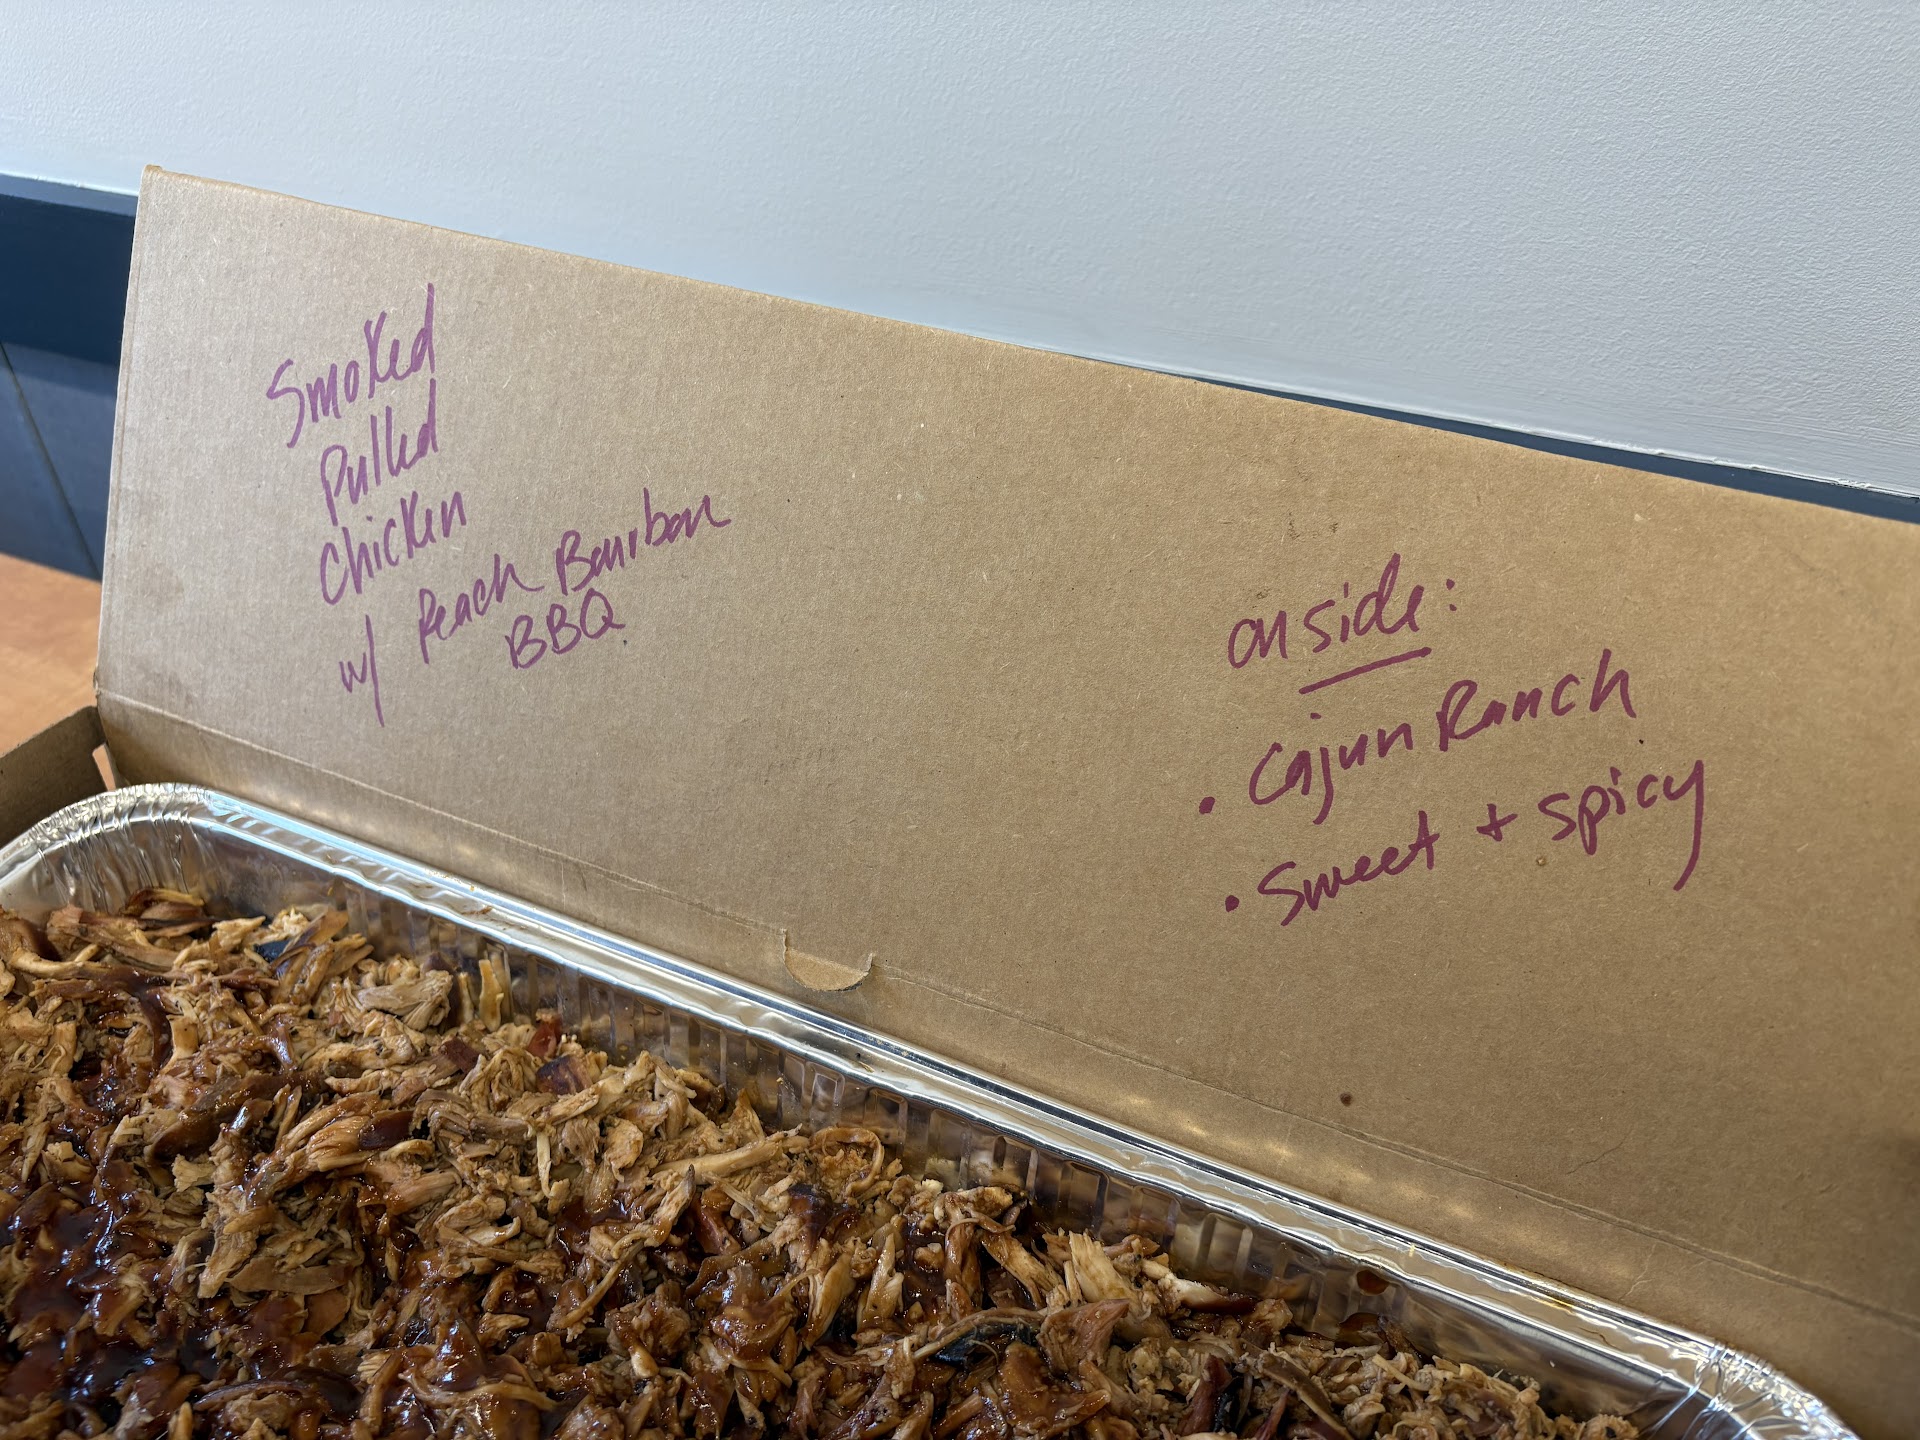 Smoked
Pulled
Chicken
w/ Peach Bourbon
BBQ
on side:
• Cajun Ranch
• Sweet + Spicy